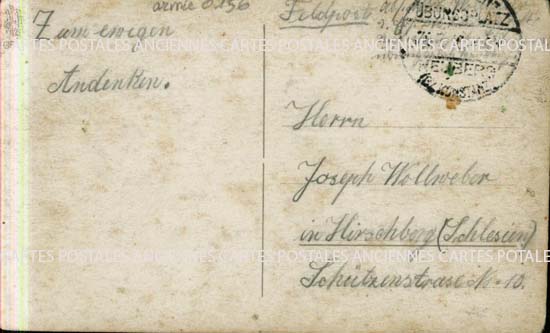 armée 0.156
Zum ewigen
Andenken.
Feldpost
ÜBUNGSPLATZ
HEUBERG
Herrn
Joseph Wollweber
in Hirschberg (Schlesien)
Schützenstrase No. 10.
CARTES POSTALES ANCIENNES CARTES POSTALES ANCIENNES CARTES POSTALES
CARTES POSTALES ANCIENNES CARTES POSTALES ANCIENNES CARTES POSTALES